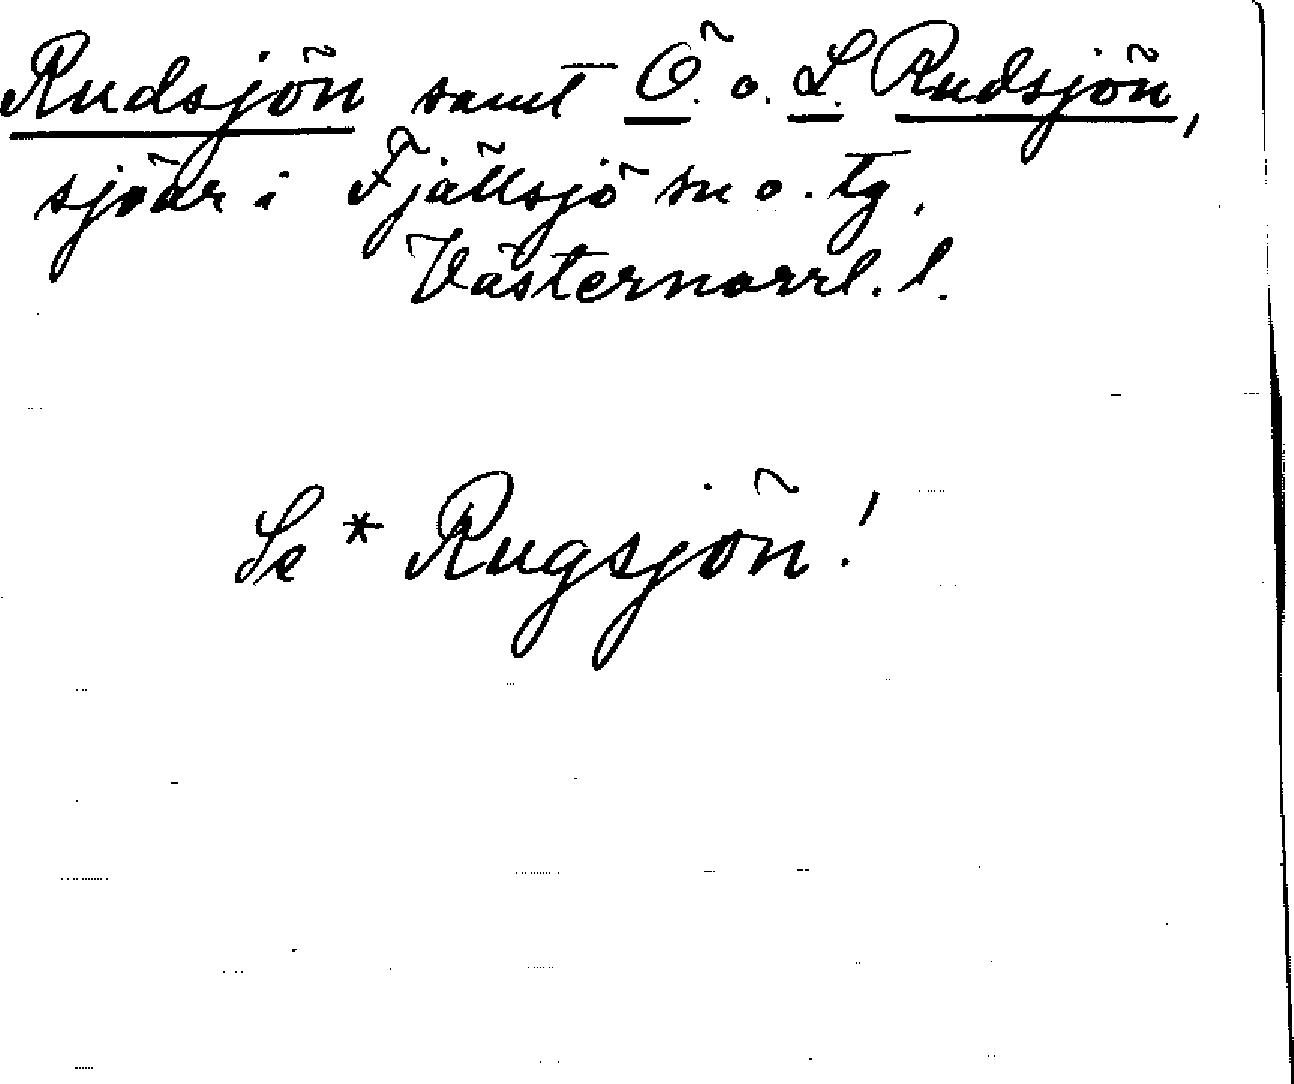 Rudsjön samt Ö. o. L. Rudsjön,
sjöar i Fjällsjö sn o. tg,
Västernorrl. l.
Se * Rugsjön!